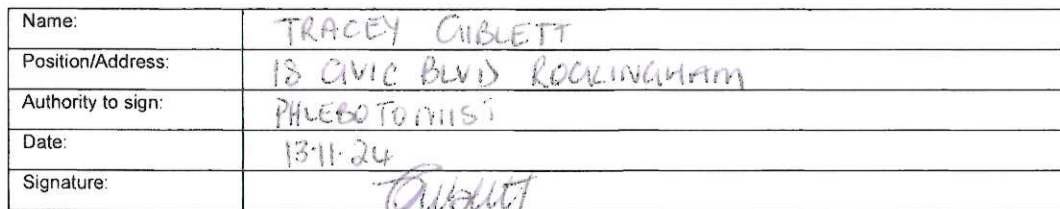 Name: TRACEY GIBLETT
Position/Address: 18 CIVIC BLVD ROCKINGHAM
Authority to sign: PHLEBOTOMIST
Date: 13.11.24
Signature: TGiblett